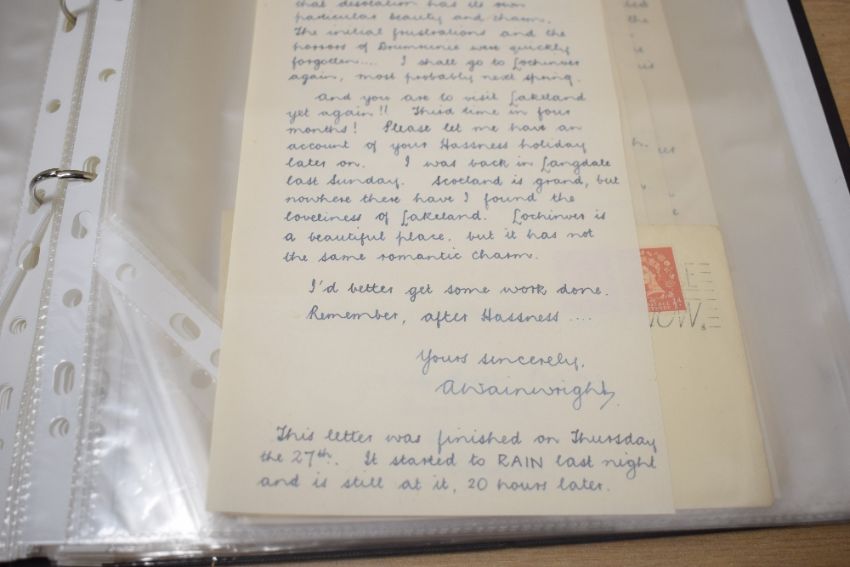 that desolation has its own
particular beauty and charm.
The initial frustrations and the
horrors of Drumrunie were quickly
forgotten.... I shall go to Lochinver
again, most probably next spring.
And you are to visit Lakeland
yet again!! Third time in four
months! Please let me have an
account of your Hassness holiday
later on. I was back in Langdale
last Sunday. Scotland is grand, but
nowhere there have I found the
loveliness of Lakeland. Lochinver is
a beautiful place, but it has not
the same romantic charm.
I'd better get some work done.
Remember, after Hassness ....
Yours sincerely,
AWainwright
This letter was finished on Thursday
the 27th. It started to RAIN last night
and is still at it, 20 hours later.
the
NOW.